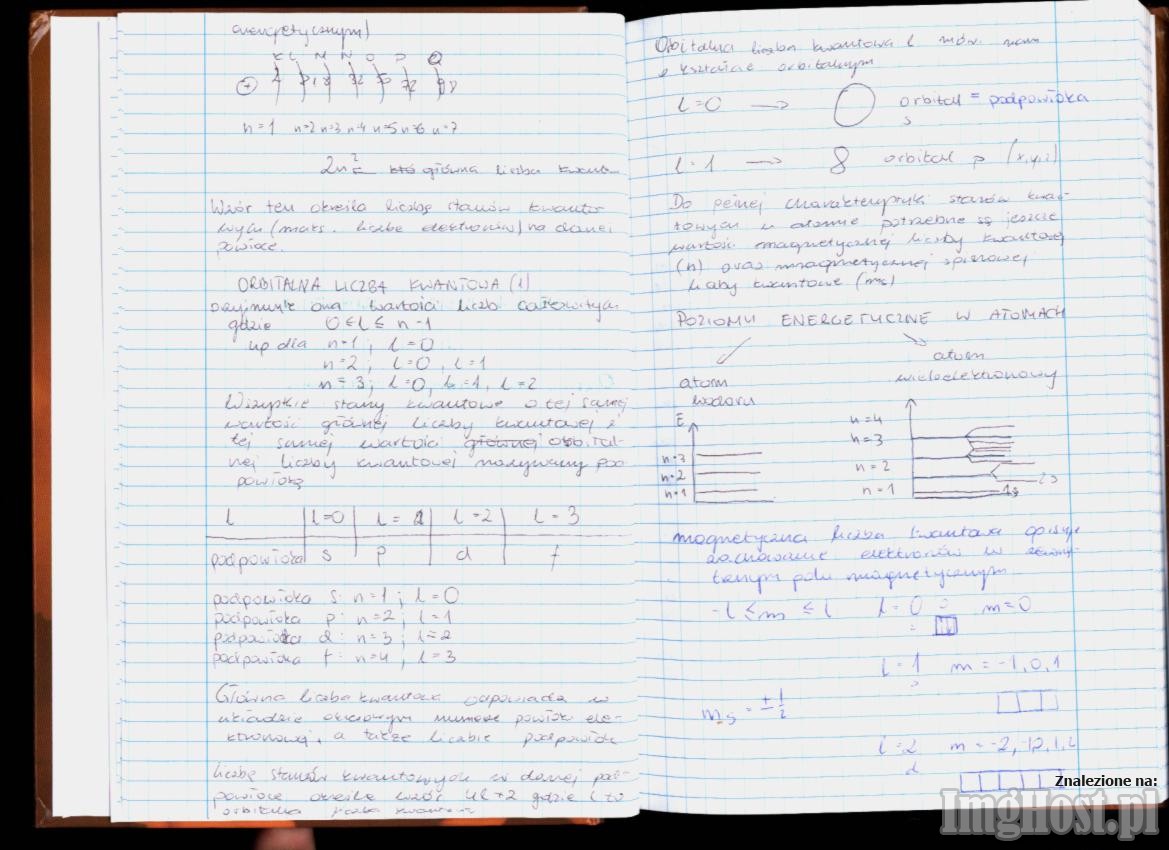 energetycznym)
K L M N O P Q
2 8 18 32 50 72 98
n=1 n=2 n=3 n=4 n=5 n=6 n=7
2n² główna liczba kwant.
Wzór ten określa liczbę stanów kwanto-
wych (maks. liczbę elektronów) na danej
powłoce.
ORBITALNA LICZBA KWANTOWA (l)
ona wartości liczb całkowitych
gdzie 0 ≤ l ≤ n-1
np dla n=1 ; l=0
n=2 ; l=0 , l=1
n=3 ; l=0, l=1, l=2
Wszystkie stany kwantowe o tej samej
wartości głównej liczby kwantowej i
tej samej wartości głównej orbital-
nej liczby kwantowej nazywamy pod-
powłoką
l l=0 l=1 l=2 l=3
podpowłoka s p d f
podpowłoka s: n=1 ; l=0
podpowłoka p: n=2 ; l=1
podpowłoka d: n=3 ; l=2
podpowłoka f: n=4 ; l=3
Główna liczba kwantowa odpowiada w
układzie okresowym numerowi powłoki ele-
ktronowej, a także liczbie podpowłok
liczbę stanów kwantowych w danej pod-
powłoce określa wzór 4l+2 gdzie l to
orbitalna liczba kwantowa
Orbitalna liczba kwantowa l mówi nam
o kształcie orbitalnym
l=0 → orbital = podpowłoka
s
l=1 → orbital p (x,y,z)
Do pełnej charakterystyki stanów kwan-
towych w atomie potrzebne są jeszcze
wartości magnetycznej liczby kwantowej
(m) oraz magnetycznej spinowej
liczby kwantowe (ms)
POZIOMY ENERGETYCZNE W ATOMACH
atom
wodoru
atom
wieloelektronowy
E
n=3
n=2
n=1
n=4
n=3
n=2
n=1
2s
1s
magnetyczna liczba kwantowa opisuje
zachowanie elektronów w zewnę-
trznym polu magnetycznym
-l ≤ m ≤ l l=0 m=0
l=1 m=-1,0,1
ms = ± 1/2
l=2 m=-2,-1,0,1,2
d
Znalezione na:
ImgHost.pl